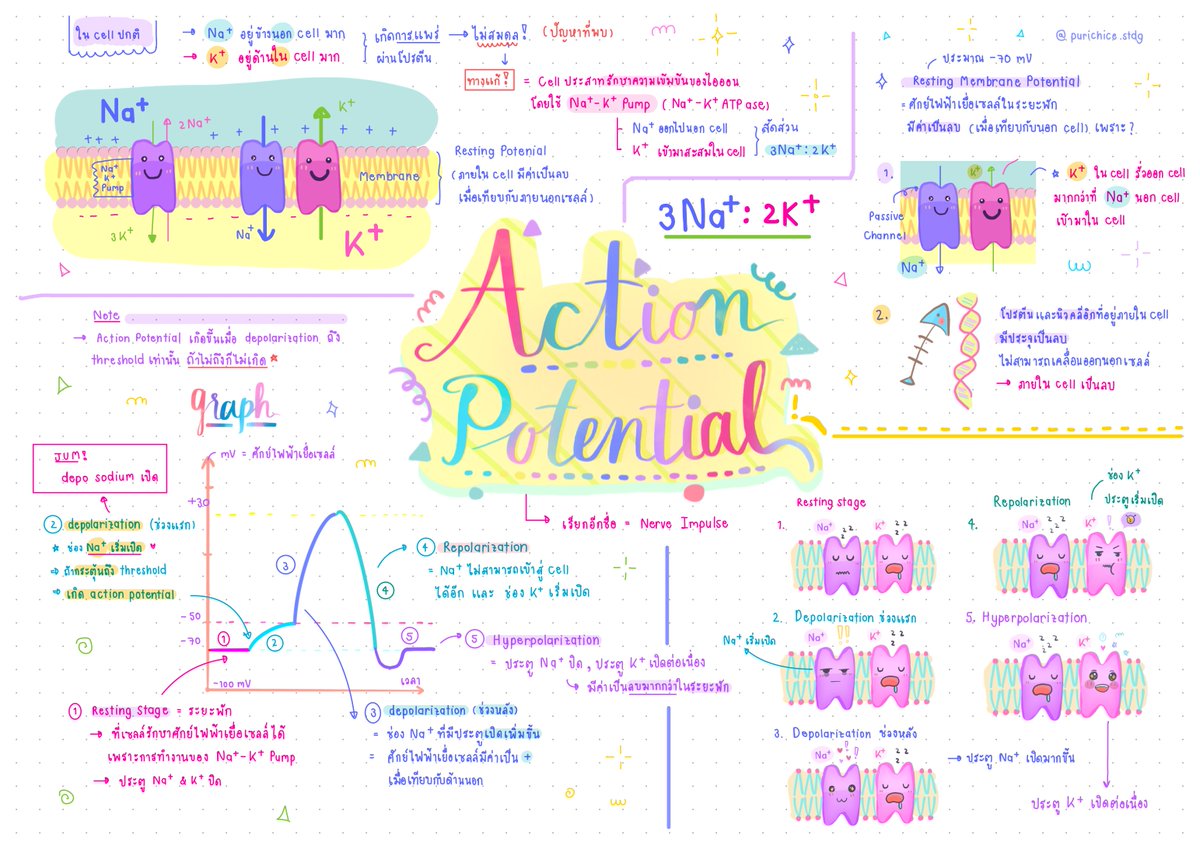 ใน cell ปกติ
→ Na⁺ อยู่ข้างนอก cell มาก
→ K⁺ อยู่ด้านใน cell มาก
เกิดการแพร่ → ไม่สมดุล! (ปัญหาที่พบ)
ผ่านโปรตีน
ทางแก้! = Cell ประสาทรักษาความเข้มข้นของไอออน
โดยใช้ Na⁺-K⁺ Pump (Na⁺-K⁺ ATPase)
Na⁺ ออกไปนอก cell
K⁺ เข้ามาสะสมใน cell
สัดส่วน
3Na⁺: 2K⁺
Na⁺
2Na⁺
K⁺
Na⁺
K⁺
Pump
Membrane
3K⁺
Na⁺
K⁺
Resting Potenial
(ภายใน cell มีค่าเป็นลบ
เมื่อเทียบกับภายนอกเซลล์)
3Na⁺: 2K⁺
@purichice.stdg
ประมาณ -70 mV
Resting Membrane Potential
= ศักย์ไฟฟ้าเยื่อเซลล์ในระยะพัก
มีค่าเป็นลบ (เมื่อเทียบกับนอก cell) เพราะ?
1.
K⁺
Passive
Channel
Na⁺
K⁺ ใน cell รั่วออก cell
มากกว่าที่ Na⁺ นอก cell
เข้ามาใน cell
2.
โปรตีน และนิวคลีอิกที่อยู่ภายใน cell
มีประจุเป็นลบ
ไม่สามารถเคลื่อนออกนอกเซลล์
→ ภายใน cell เป็นลบ
Note
→ Action Potential เกิดขึ้นเมื่อ depolarization ถึง
threshold เท่านั้น ถ้าไม่ถึงก็ไม่เกิด
Action
Potential
→ เรียกอีกชื่อ = Nerve Impulse
graph
mV = ศักย์ไฟฟ้าเยื่อเซลล์
+30
-50
-70
-100 mV
เวลา
1
2
3
4
5
depo sodium เปิด
2 depolarization (ช่วงแรก)
ช่อง Na⁺ เริ่มเปิด
→ ถ้ากระตุ้นถึง threshold
→ เกิด action potential
4 Repolarization
= Na⁺ ไม่สามารถเข้าสู่ cell
ได้อีก และ ช่อง K⁺ เริ่มเปิด
5 Hyperpolarization
= ประตู Na⁺ ปิด, ประตู K⁺ เปิดต่อเนื่อง
→ มีค่าเป็นลบมากกว่าในระยะพัก
1 Resting Stage = ระยะพัก
→ ที่เซลล์รักษาศักย์ไฟฟ้าเยื่อเซลล์ได้
เพราะการทำงานของ Na⁺-K⁺ Pump
→ ประตู Na⁺ & K⁺ ปิด
3 depolarization (ช่วงหลัง)
= ช่อง Na⁺ ที่มีประตูเปิดเพิ่มขึ้น
= ศักย์ไฟฟ้าเยื่อเซลล์มีค่าเป็น +
เมื่อเทียบกับด้านนอก
Resting stage
1.
Na⁺ zzz K⁺ zz
2. Depolarization ช่วงแรก
Na⁺ เริ่มเปิด
Na⁺ !! K⁺ zz
3. Depolarization ช่วงหลัง
Na⁺ !! K⁺ zz
→ ประตู Na⁺ เปิดมากขึ้น
Repolarization
4.
ช่อง K⁺
ประตูเริ่มเปิด
Na⁺ zzz K⁺ !
5. Hyperpolarization
Na⁺ zzz K⁺
ประตู K⁺ เปิดต่อเนื่อง